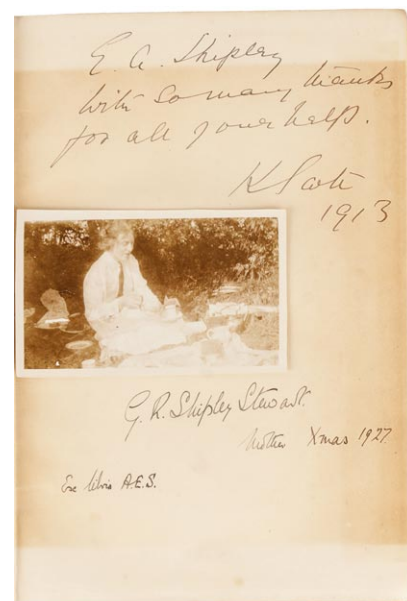 E. A. Shipley
with so many thanks
for all your help.
K Scott
1913
G. R. Shipley Stewart.
Mother Xmas 1927
Ex libris A.E.S.